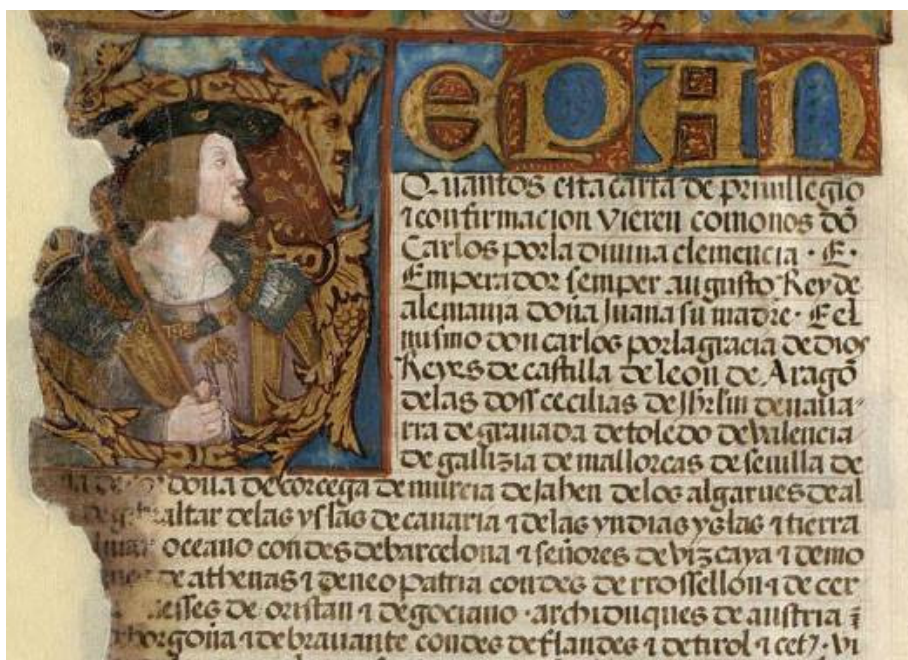 EPAN
Quantos esta carta de priuillegio
⁊ confirmacion vieren comonos dõ
Carlos por la diuina clemencia · E ·
Emperador semper augusto Rey de
alemania doña Juana su madre · E el
mismo don carlos por la gracia de dios
Reyes de castilla de leon de Aragõ
de las doss cecilias de Jhrlm de naua-
rra de granada de toledo de valencia
de gallizia de mallorcas de seuilla de
doua de corcega de murcia de Jahen de los algarues de al
altar de las yslas de canaria ⁊ de las yndias yslas ⁊ tierra
oceano condes de barcelona ⁊ señores de vizcaya ⁊ de mo
de athenas ⁊ de neopatria condes de rrossellon ⁊ de cer
esses de oristan ⁊ de gociano · archiduques de austria ⁊
borgoña ⁊ de brauante condes de flandes ⁊ de tirol ⁊ cet · Vi